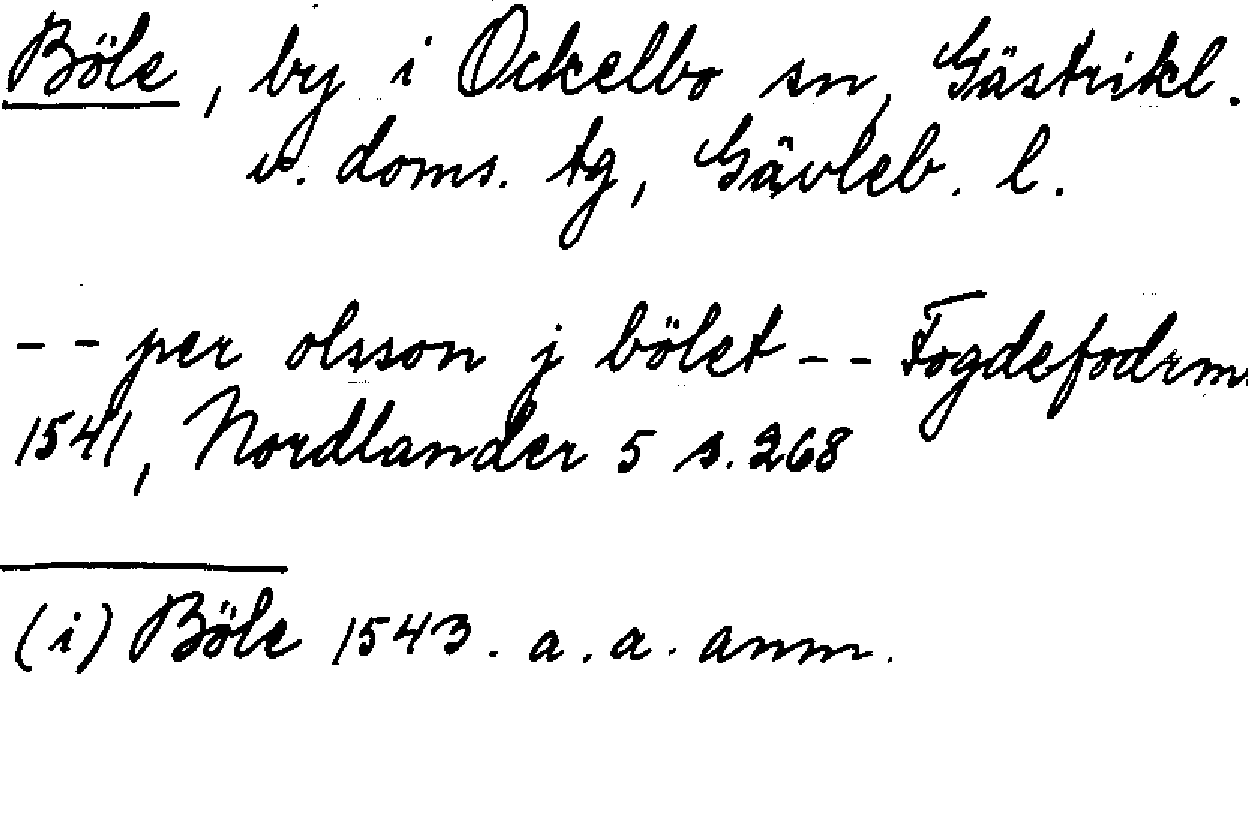 Böle, by i Ockelbo sn, Gästrikl.
v. doms. tg, Gävleb. l.
-- per olsson j bölet -- Fogdefodrm
1541, Nordlander 5 s. 268
(i) Böle 1543. a. a. anm.